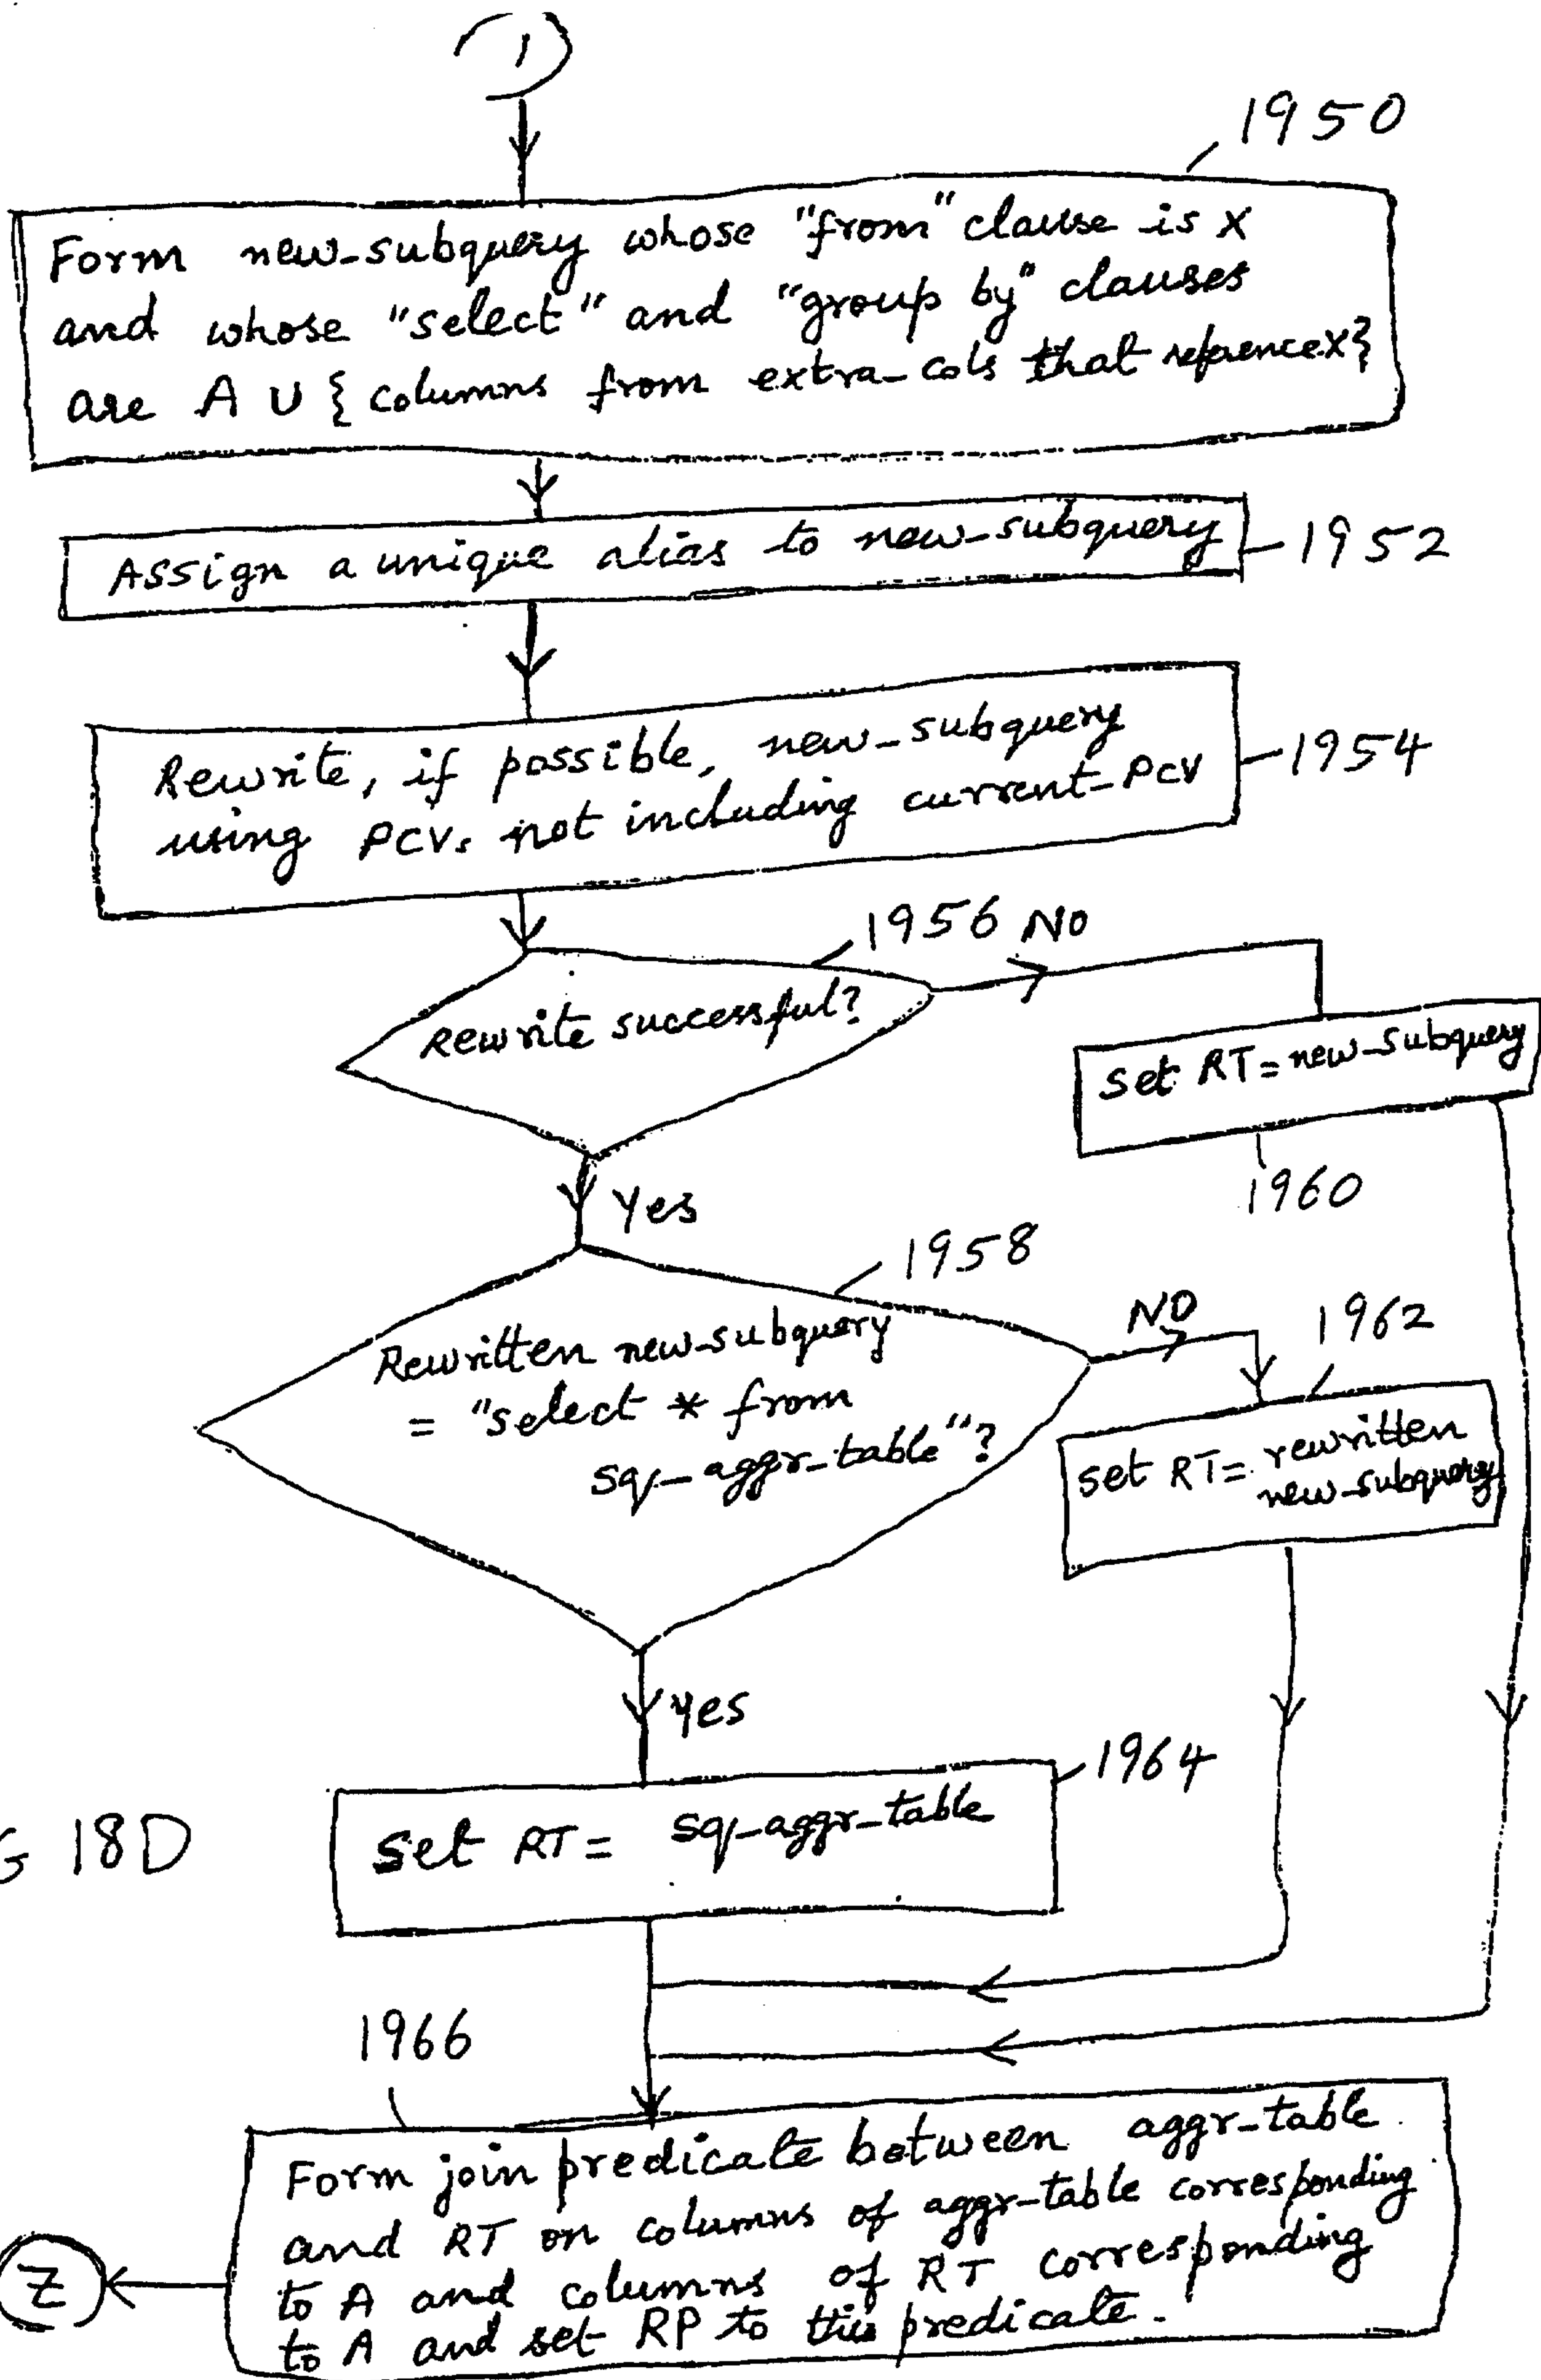 1
1950
Form new-subquery whose "from" clause is X
and whose "select" and "group by" clauses
are A ∪ { columns from extra-cols that reference X}
Assign a unique alias to new-subquery
1952
Rewrite, if possible, new-subquery
using PCVs not including current-PCV
1954
1956
NO
Rewrite successful?
Set RT = new-subquery
1960
Yes
1958
Rewritten new-subquery
= "select * from
sq-aggr-table"?
NO
1962
set RT = rewritten
new-subquery
Yes
1964
Set RT = sq-aggr-table
G 18D
1966
Form join predicate between aggr-table
and RT on columns of aggr-table corresponding
to A and columns of RT corresponding
to A and set RP to this predicate.
Z